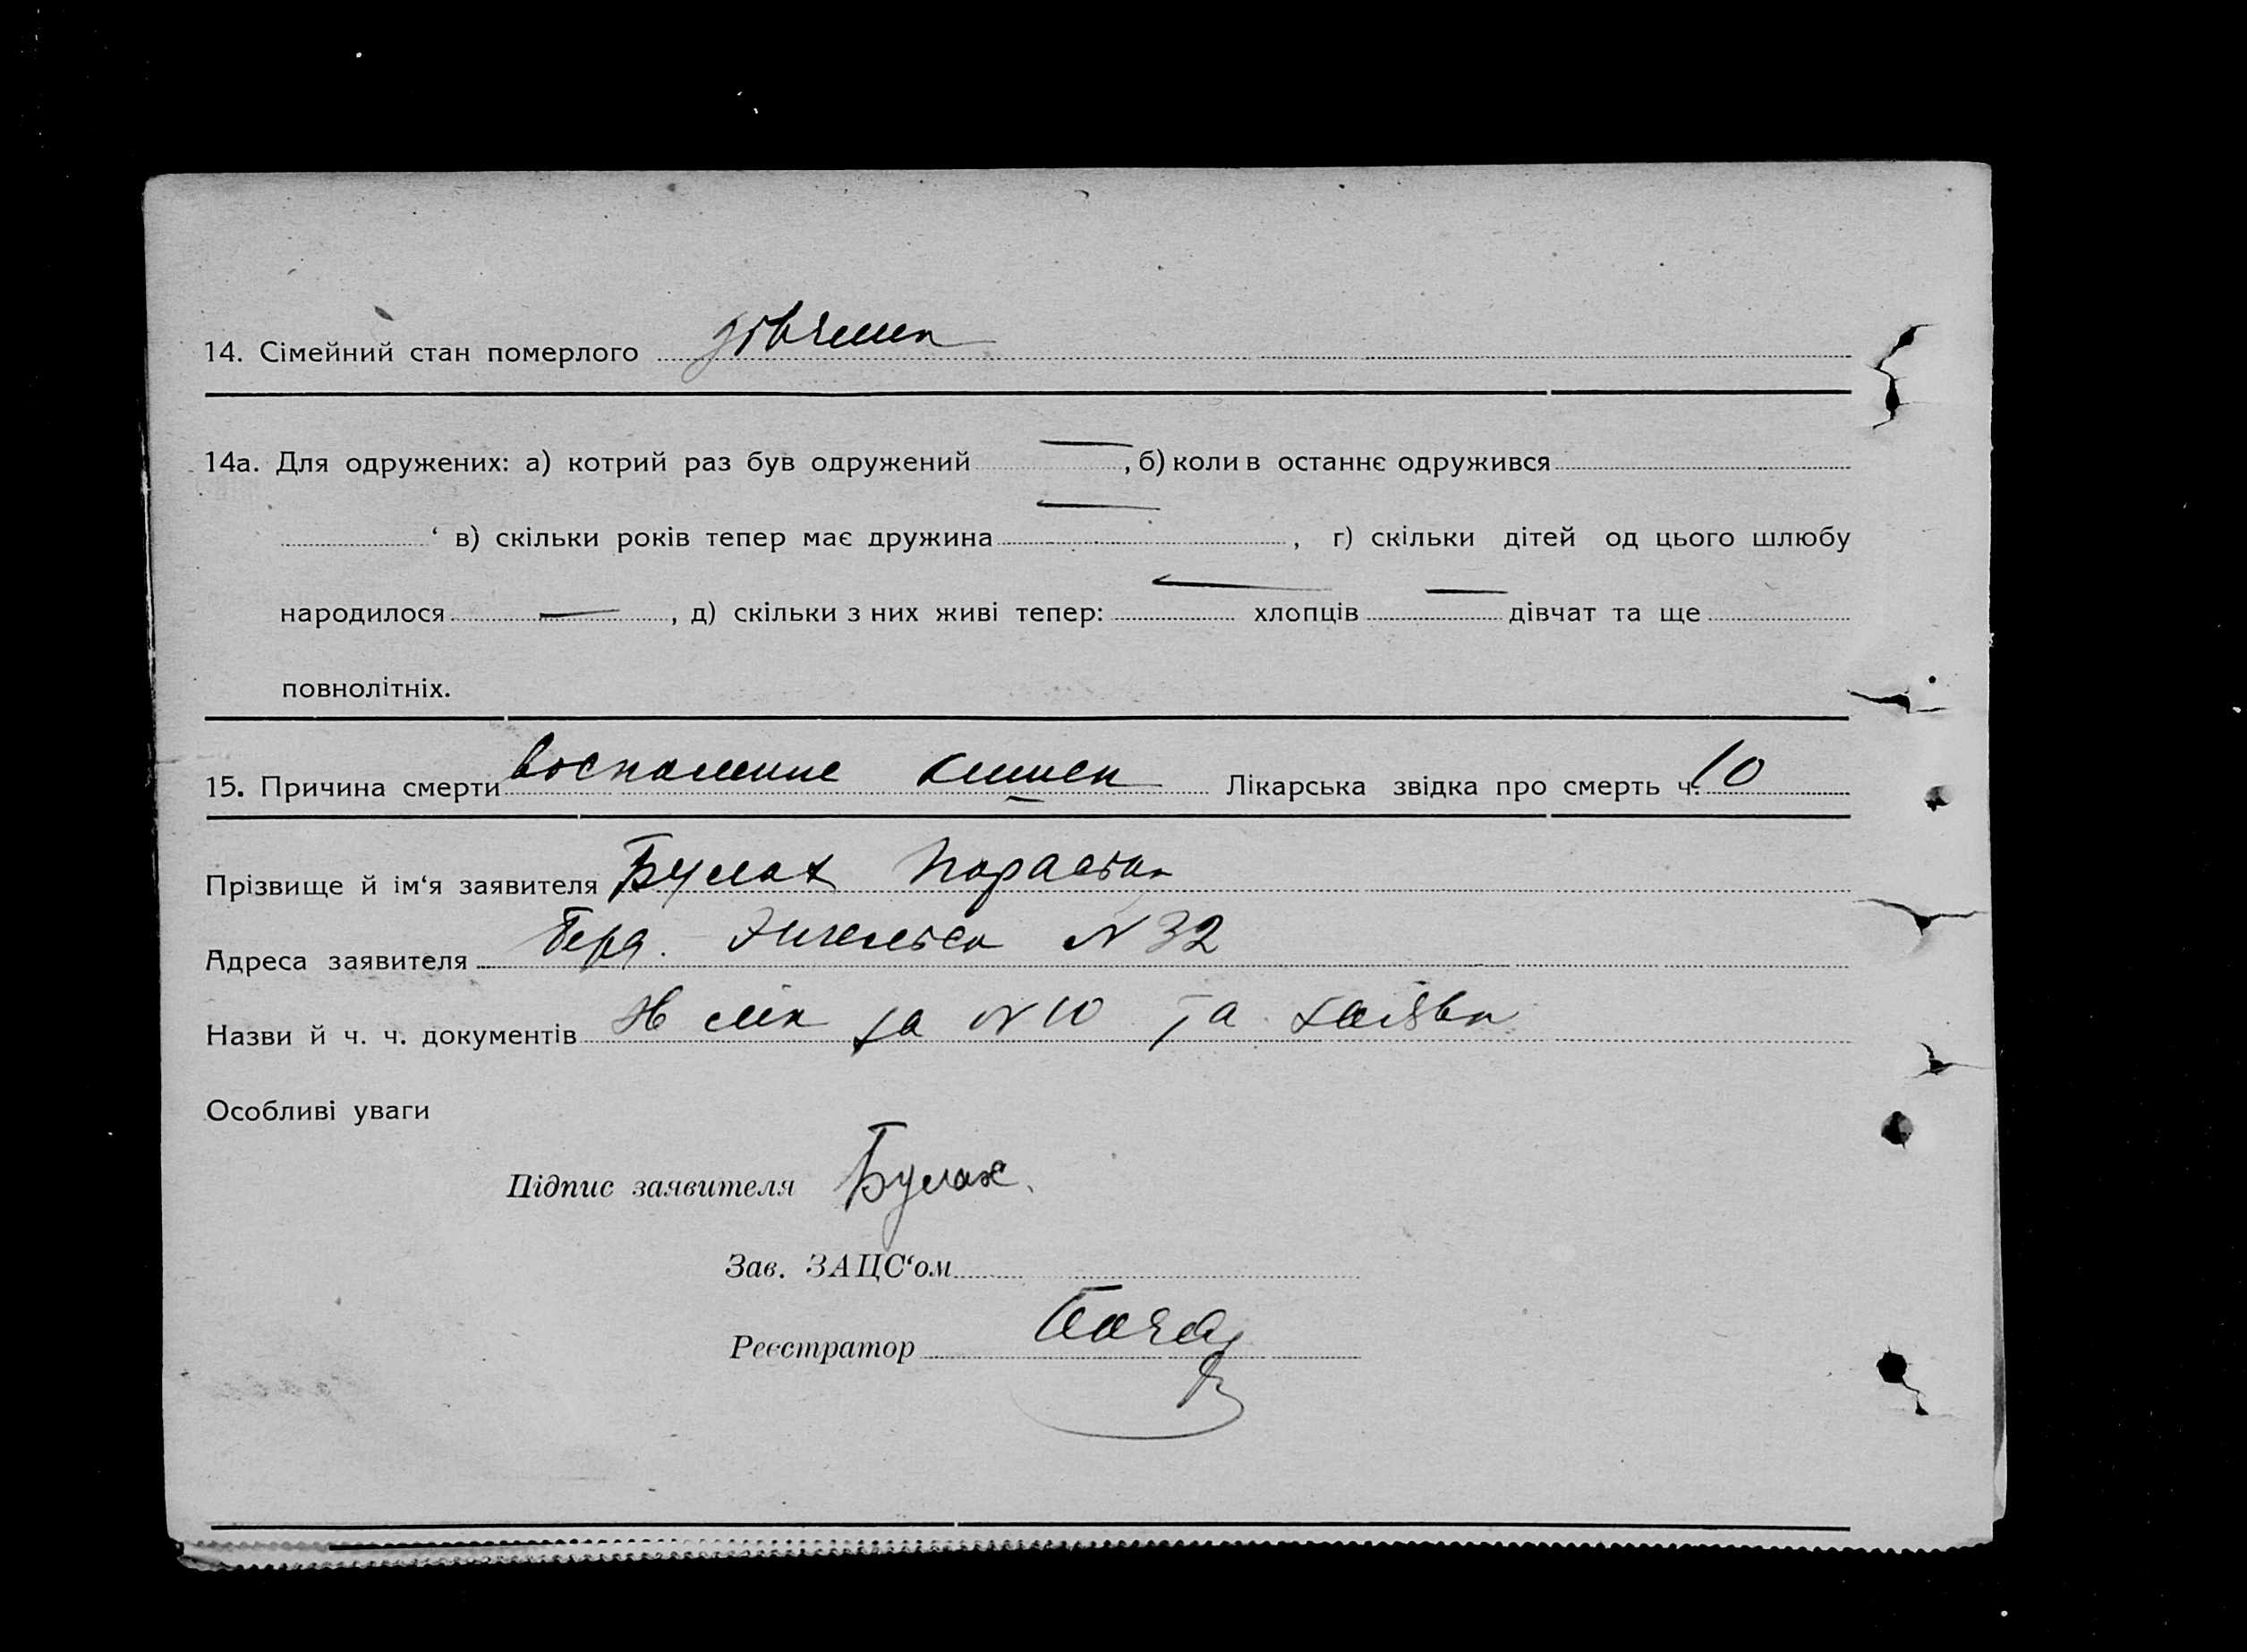 14. Сімейний стан померлого дівчина
14а. Для одружених: а) котрий раз був одружений —, б) коли в останнє одружився
‘ в) скільки років тепер має дружина —, г) скільки дітей од цього шлюбу
народилося —, д) скільки з них живі тепер: — хлопців — дівчат та ще
повнолітніх.
15. Причина смерти воспаление кишек Лікарська звідка про смерть ч. 10
Прізвище й ім‘я заявителя Булах
Адреса заявителя Берд. N 32
Назви й ч. ч. документів лік за N 10 та заява
Особливі уваги
Підпис заявителя Булах
Зав. ЗАЦС‘ом
Реєстратор